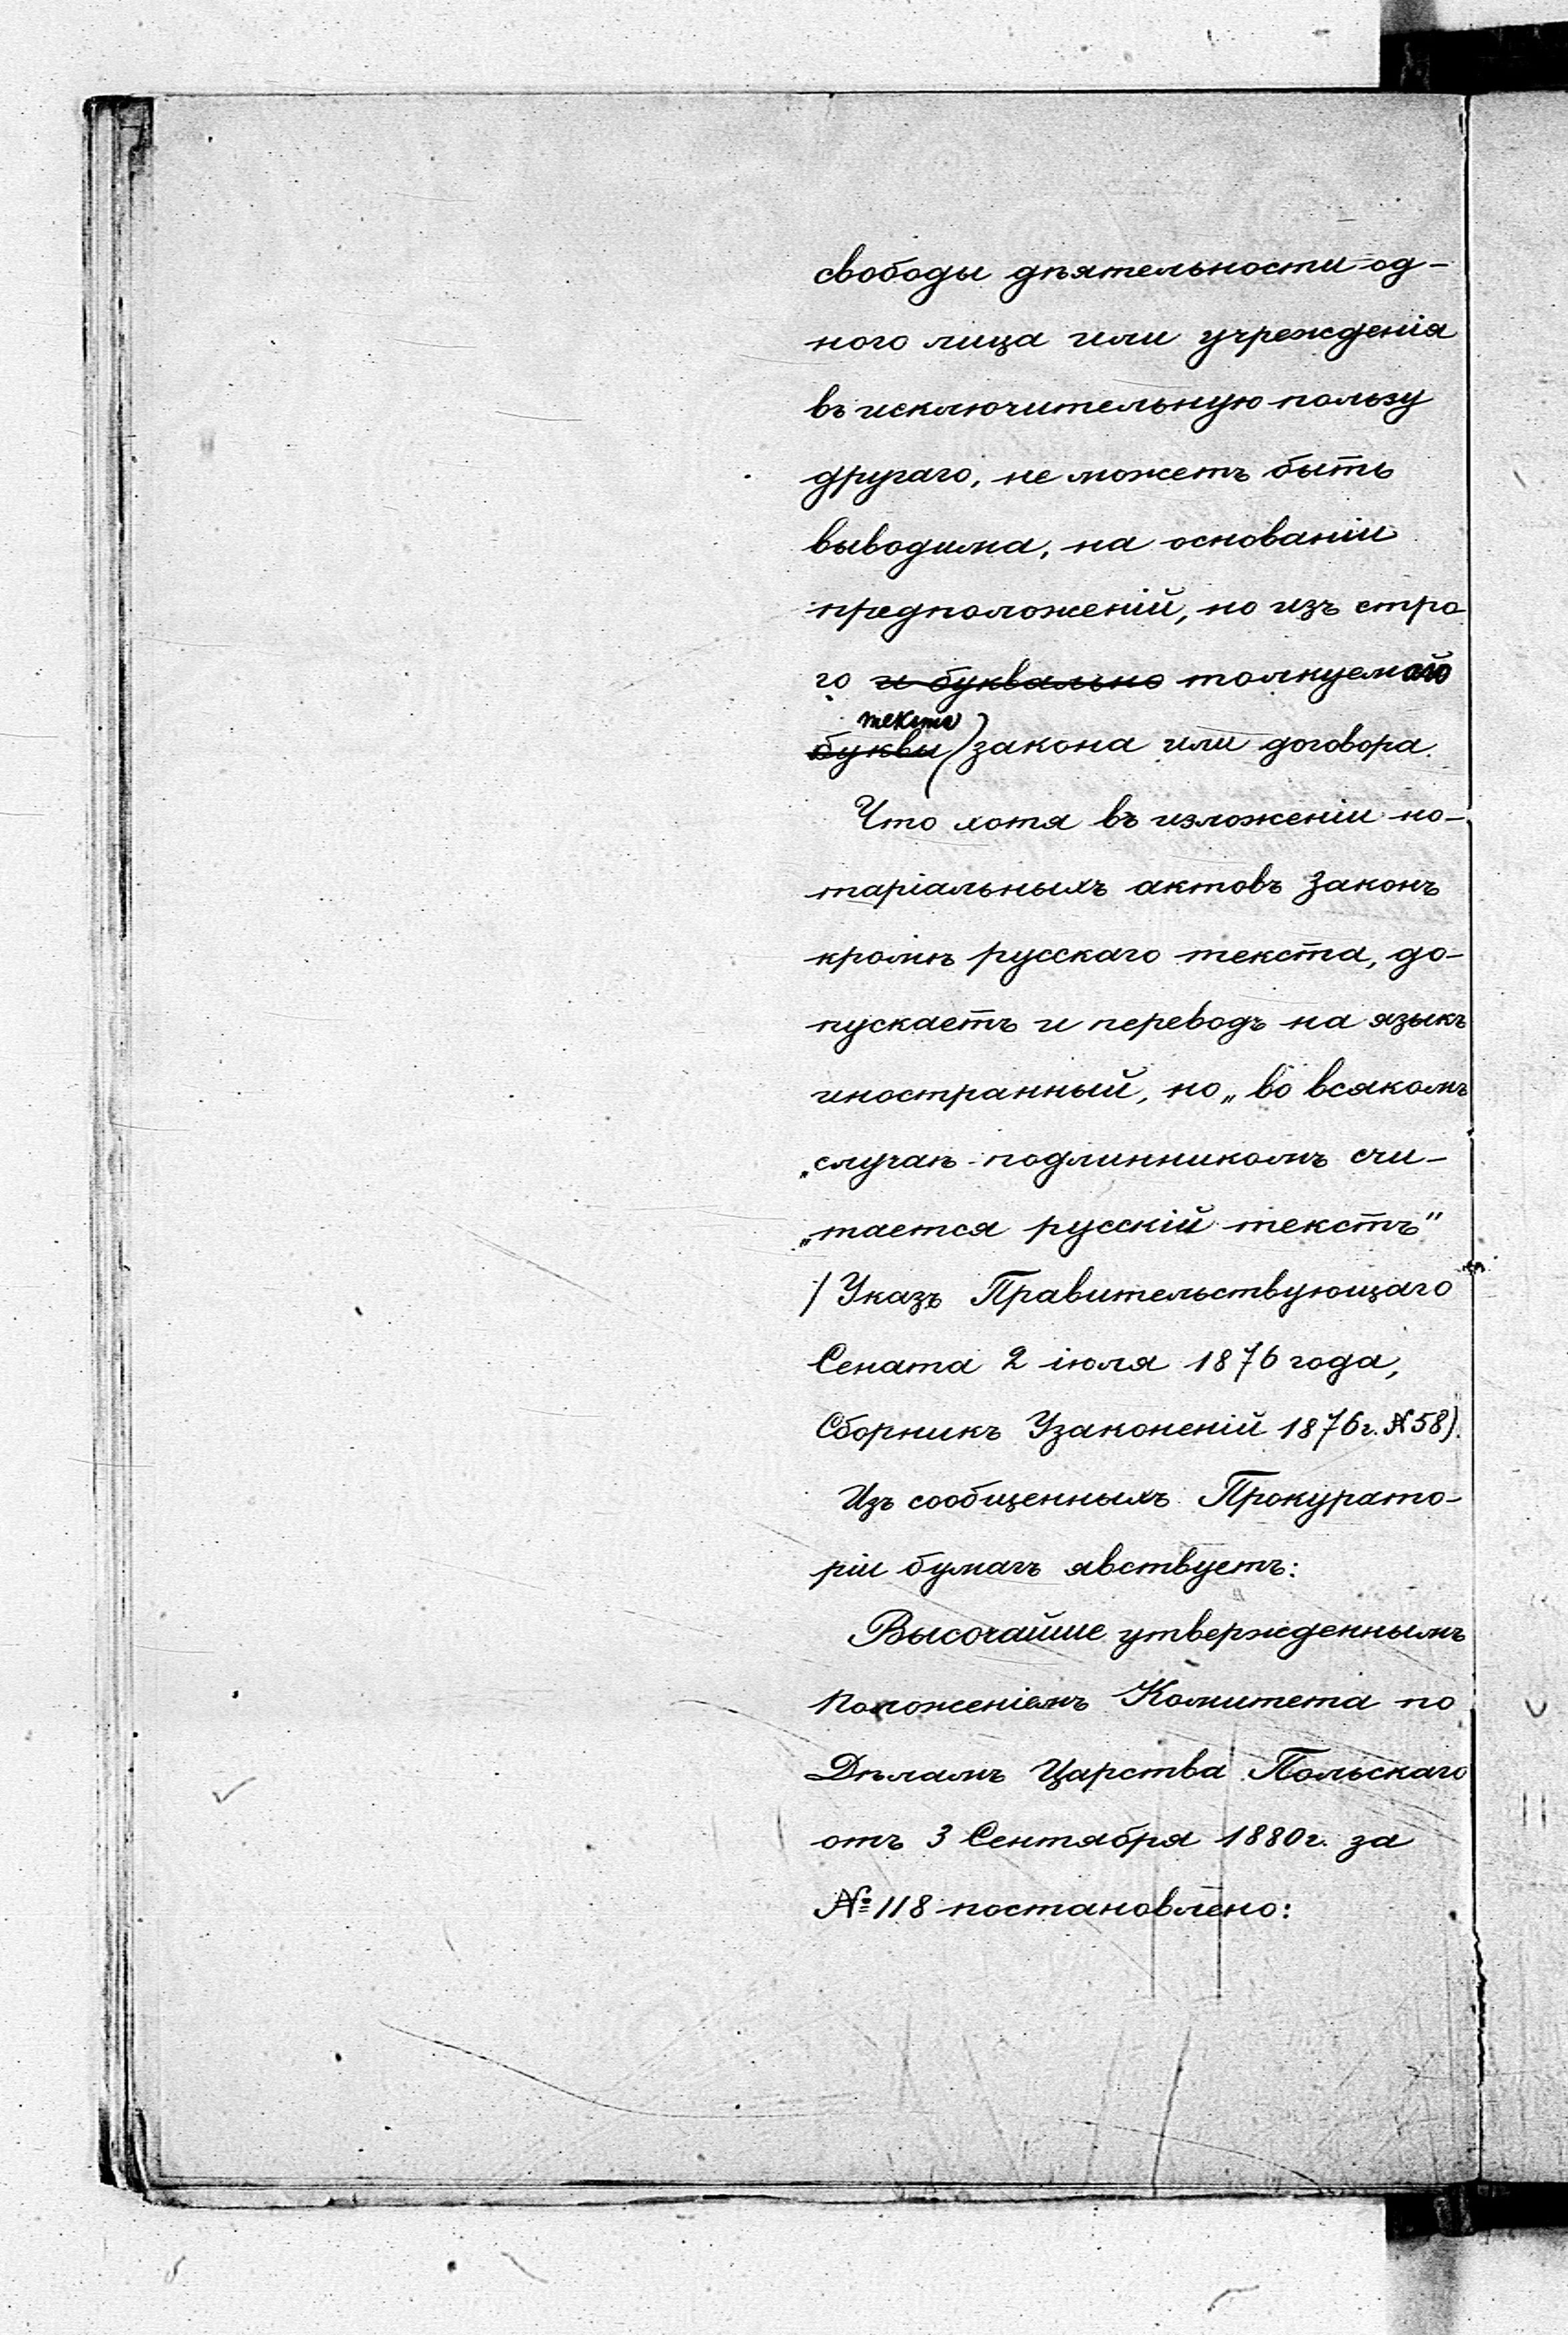 свободы дѣятельности од-
ного лица или учрежденія
въ исключительную пользу
другаго, не можетъ быть
выводима, на основаніи
предположеній, но изъ стро
го и буквально толкуемаго
текста
буквы) закона или договора.
Что хотя въ изложеніи но-
таріальныхъ актовъ законъ
кромѣ русскаго текста, до-
пускаетъ и переводъ на языкъ
иностранный, но „во всякомъ
„случаѣ подлинникомъ счи-
„тается русскій текстъ"
/Указъ Правительствующаго
Сената 2 іюля 1876 года,
Сборникъ Узаконеній 1876 г. № 58).
Изъ сообщенныхъ Прокурато-
ріи бумагъ явствуетъ:
Высочайше утвержденнымъ
Положеніемъ Комитета по
Дѣламъ Царства Польскаго
отъ 3 Сентября 1880 г. за
№ 118 постановлено: